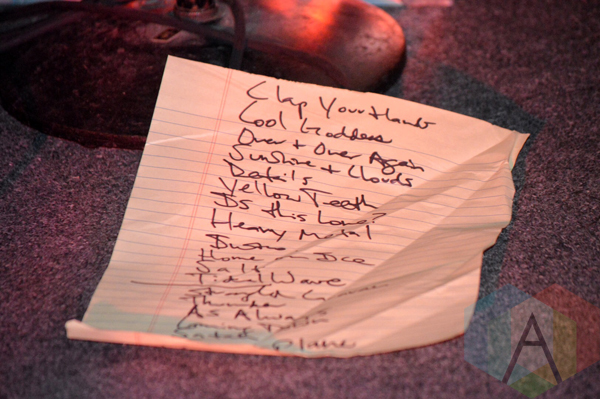 Clap Your Hands
Cool Goddess
Over + Over Again
Sunshine + Clouds
Details
Yellow Teeth
Is this Love?
Heavy Metal
Home — Ice
Salt
Tidal Wave
As Always
Coming Down
A